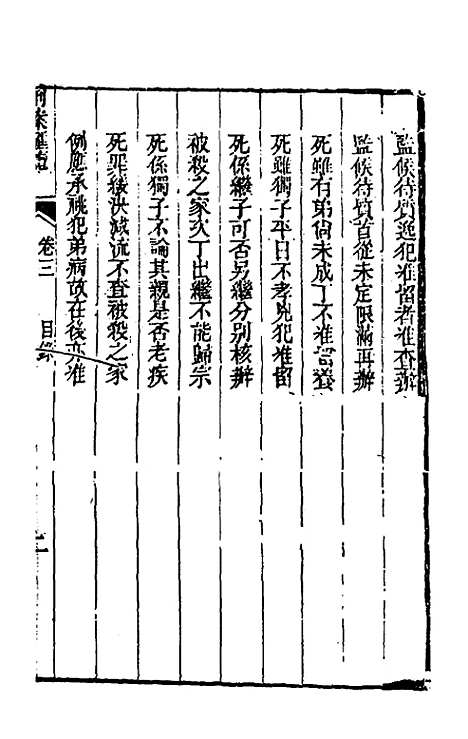 監候待質逸犯准留者准查辦
監候待質首從未定限滿再辦
死雖有弟尙未成丁不准留養
死雖獨子平日不孝兇犯准留
死係繼子可否另繼分別核辦
被殺之家次丁出繼不能歸宗
死係獨子不論其親是否老疾
死罪緩決減流不查被殺之家
例應承祧犯弟病故在後亦准
卷三
目錄